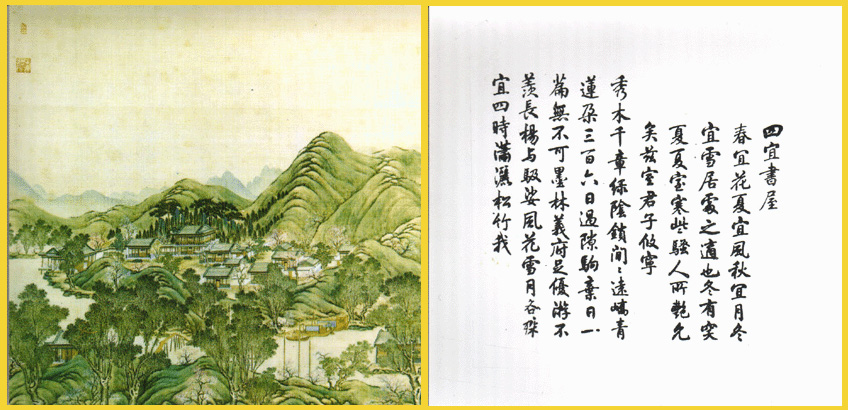 四宜書屋
春宜花夏宜風秋宜月冬
宜雪居處之適也冬有突
夏夏室寒些騷人所艷允
矣茲室君子攸寧
秀木千章綠陰鎖間〻遠嶠青
蓮朶三百六日過隙駒棄日一
篇無不可墨林義府足優游不
羨長楊与馺娑風花雪月各殊
宜四時瀟灑松竹我